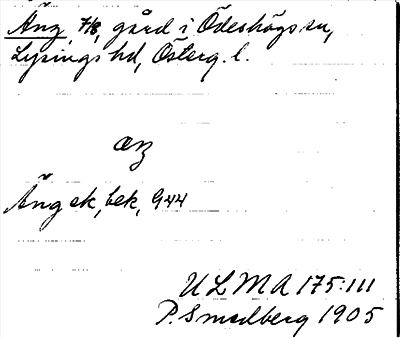 Äng, 7/8, gård i Ödeshögs sn,
Lysings hd, Österg. l.
æŋ
Äng ek, bek, G44
ULMA 175:111
P. Smedberg 1905